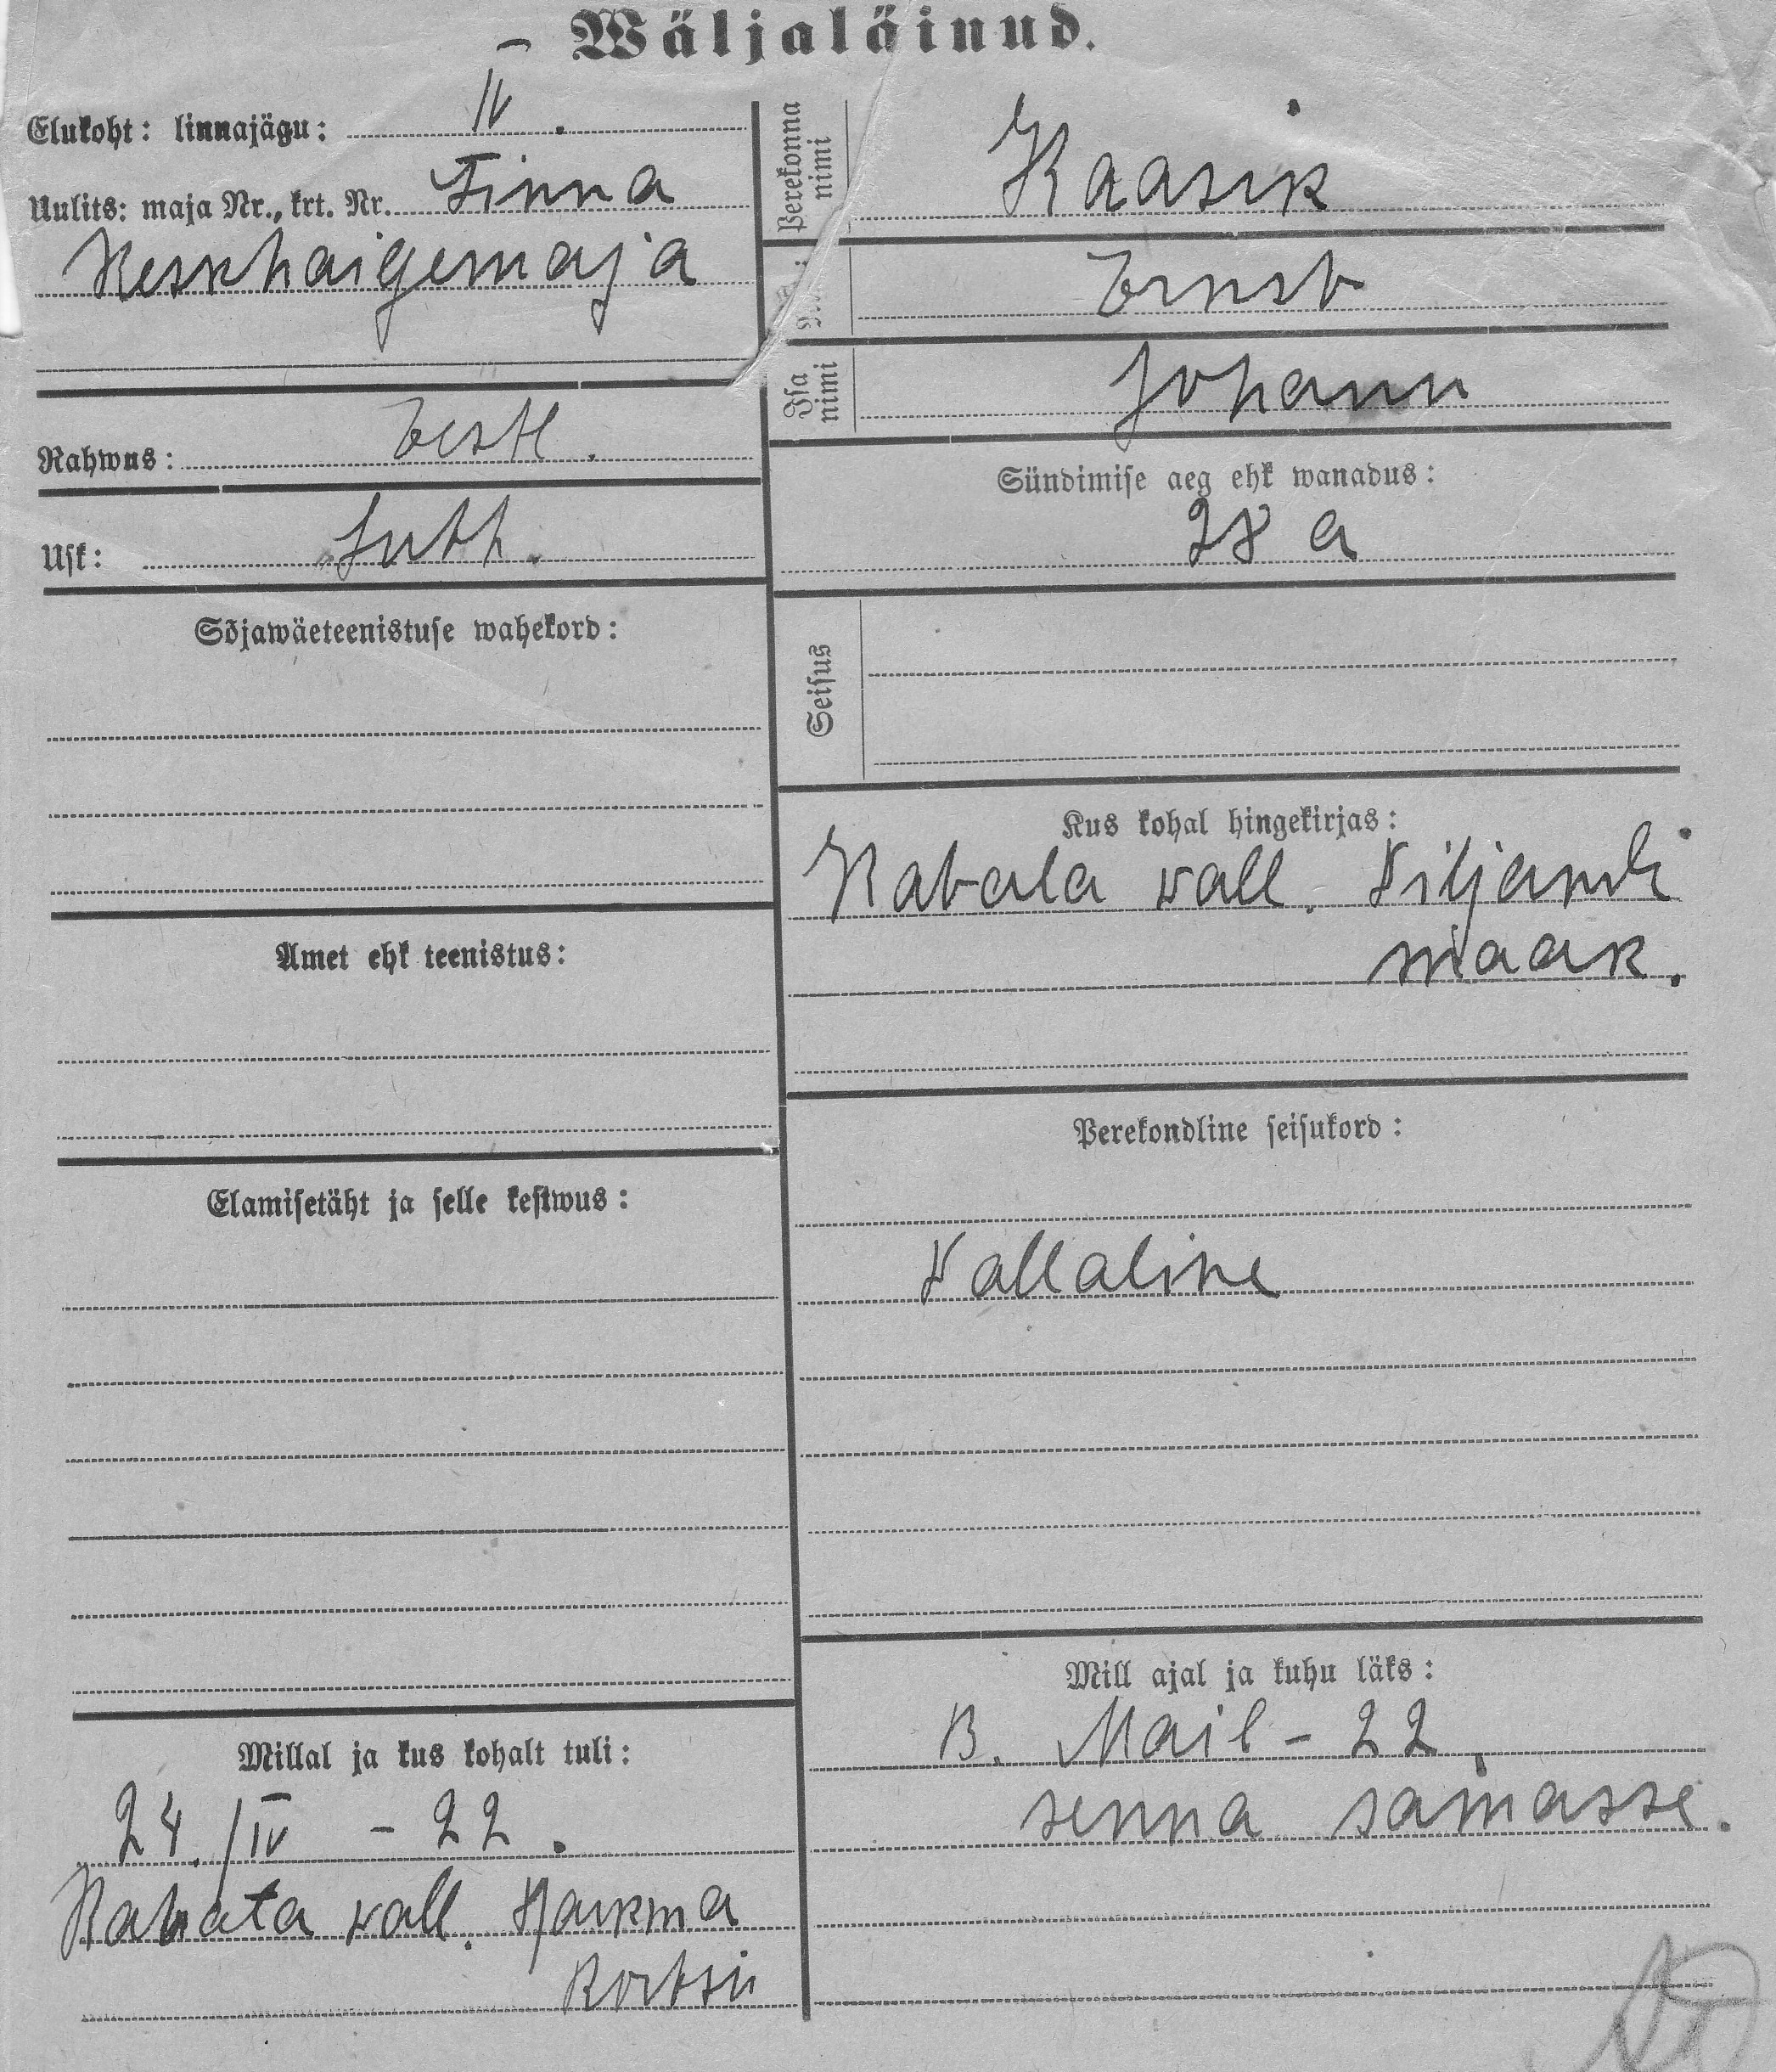 – Wäljaläinud.
Elukoht: linnajägu: IV.
Uulits: maja Nr., krt. Nr. Linna
Keskhaigemaja
Rahwus: Eestl.
Usk: Luth.
Sõjawäeteenistuse wahekord:
Amet ehk teenistus:
Elamisetäht ja selle kestwus:
Millal ja kus kohalt tuli:
24./IV – 22.
Kabala vall.
Perekonna
nimi
Kaasik
Ernst
Isa
nimi
Johann
Sündimise aeg ehk wanadus:
28 a
Seisus
Kus kohal hingekirjas:
Kabala vall. Viljandi
maak.
Perekondline seisukord:
Vallaline
Mill ajal ja kuhu läks:
Mail – 22.
senna samasse.